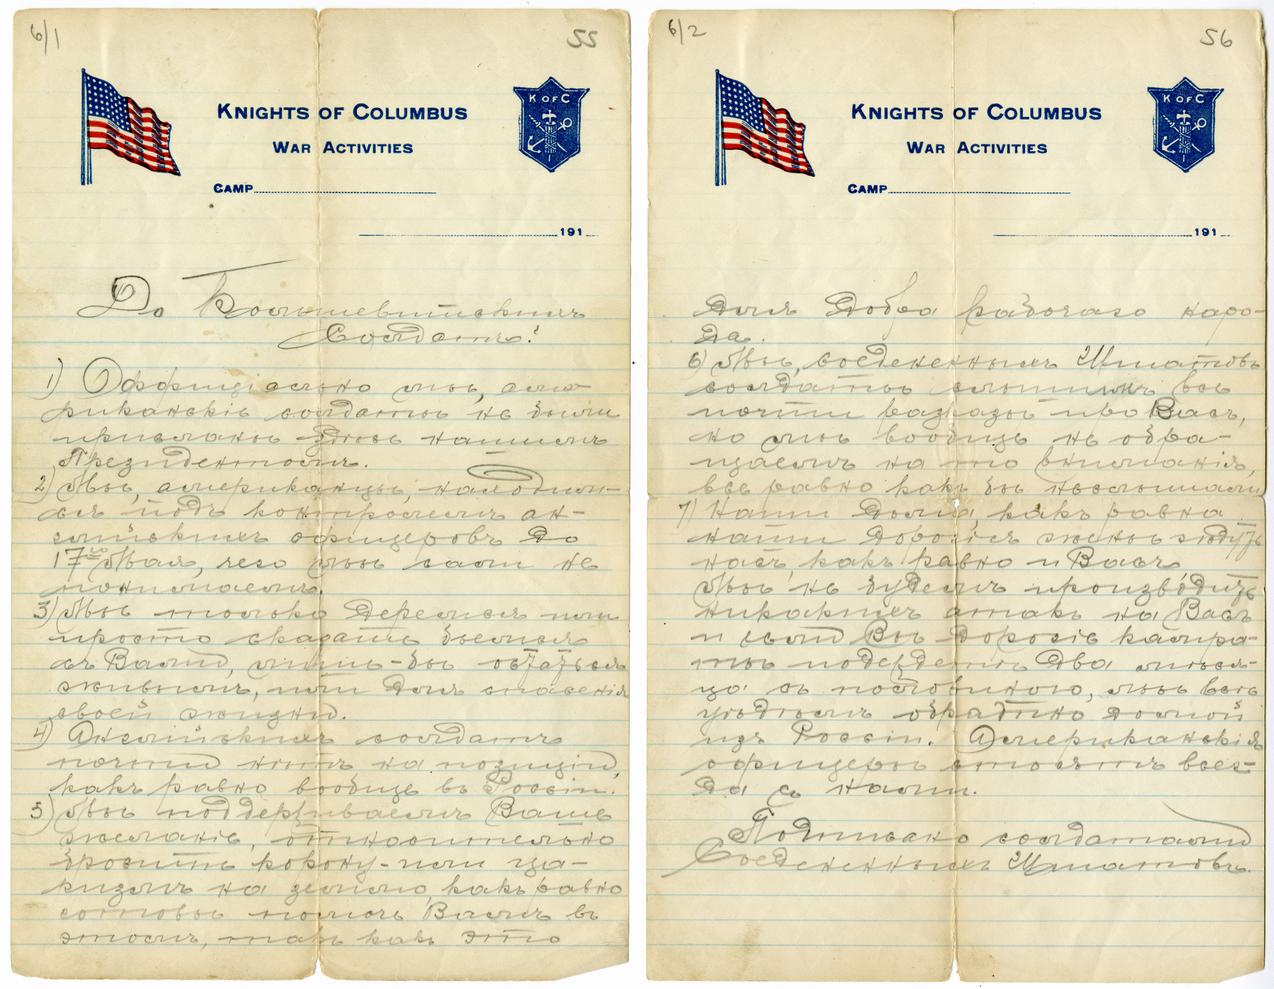 6/1
55
KNIGHTS OF COLUMBUS
WAR ACTIVITIES
K OF C
CAMP
191
До Большевитскихъ
Солдатъ!
1) Оффиціально мы, аме-
риканскіе солдаты не были
присланы здѣсь нашимъ
Президентомъ.
2) Мы, американцы, находили-
сь подъ контролемъ ан-
глійскихъ офицеровъ до
17го Мая, чего мы сами не
понимаемъ.
3) Мы только деремся или
просто сказать бьемся
съ Вами, лишь-бы остаться
живымъ, или для спасенія
своей жизни.
4) Англійскихъ солдатъ
почти нѣтъ на позиціи,
какъ равно вообще въ Россіи.
5) Мы поддерживаемъ Ваше
желаніе, относительно
бросить корону-или ца-
ризмъ на землю, какъ равно
готовы помочь Вамъ въ
этомъ, такъ какъ это
6/2
56
KNIGHTS OF COLUMBUS
WAR ACTIVITIES
K OF C
CAMP
191
для добра рабочаго наро-
да.
6) Мы, соедененныхъ Штатовъ
солдаты слышимъ всѣ
почти разказы про Васъ,
но мы вообще не обра-
щаемъ на то вниманія,
все равно какъ бы неслышали
7) Наши дома, какъ равно
наши дорогія жены ждутъ
насъ, какъ равно и Васъ
Мы не будемъ производить
никакихъ атакъ на Васъ
и если Вы дорогіе камра-
ты подердите два мѣся-
ца съ половиною, мы всѣ
уѣдемъ обратно домой
изъ Россіи. Американскія
офицеры стоятъ всег-
да съ нами.
Подписано солдатами
Соедененныхъ Штатовъ.